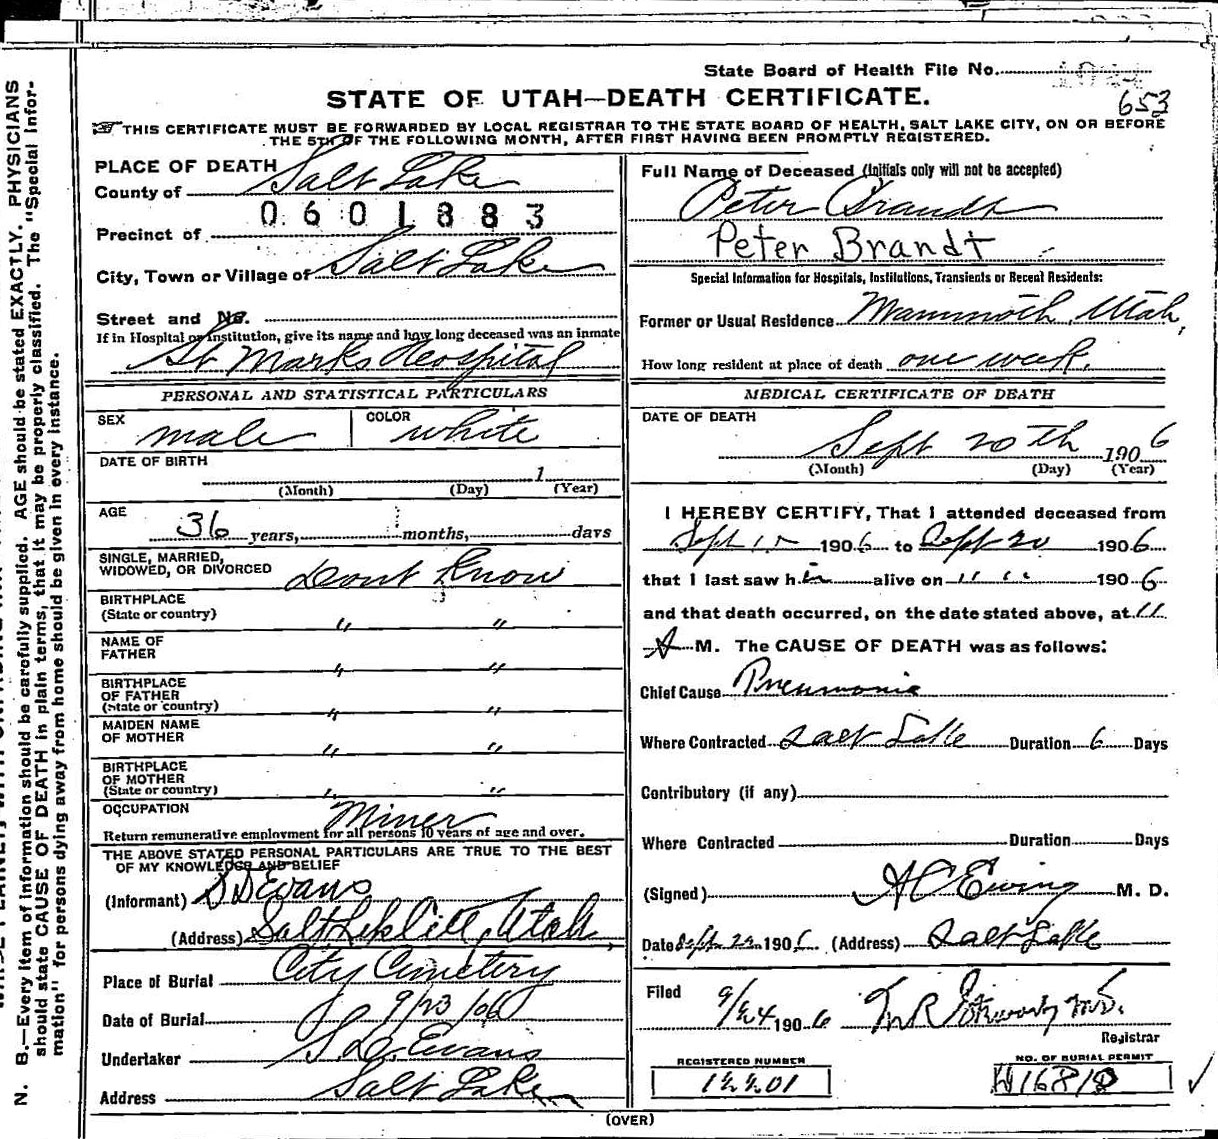 State Board of Health File No.
653
STATE OF UTAH—DEATH CERTIFICATE.
THIS CERTIFICATE MUST BE FORWARDED BY LOCAL REGISTRAR TO THE STATE BOARD OF HEALTH, SALT LAKE CITY, ON OR BEFORE
THE 5TH OF THE FOLLOWING MONTH, AFTER FIRST HAVING BEEN PROMPTLY REGISTERED.
PLACE OF DEATH
County of Salt Lake
0601883
Precinct of
City, Town or Village of Salt Lake
Street and No.
If in Hospital or institution, give its name and how long deceased was an inmate
St Marks Hospital
Full Name of Deceased (Initials only will not be accepted)
Peter Brandt
Peter Brandt
Special Information for Hospitals, Institutions, Transients or Recent Residents:
Former or Usual Residence Mammoth, Utah,
How long resident at place of death one week.
PERSONAL AND STATISTICAL PARTICULARS
SEX male COLOR white
DATE OF BIRTH
1
(Month) (Day) (Year)
AGE
36 years, months, days
SINGLE, MARRIED,
WIDOWED, OR DIVORCED Dont Know
BIRTHPLACE
(State or country) " "
NAME OF
FATHER " "
BIRTHPLACE
OF FATHER
(State or country) " "
MAIDEN NAME
OF MOTHER " "
BIRTHPLACE
OF MOTHER
(State or country) " "
OCCUPATION Miner
Return remunerative employment for all persons 10 years of age and over.
THE ABOVE STATED PERSONAL PARTICULARS ARE TRUE TO THE BEST
OF MY KNOWLEDGE AND BELIEF
(Informant) S D Evans
(Address) Salt Lake City, Utah,
Place of Burial City Cemetery
Date of Burial 9/23/06
Undertaker S D. Evans
Address Salt Lake
MEDICAL CERTIFICATE OF DEATH
DATE OF DEATH
Sept 20th 1906
(Month) (Day) (Year)
I HEREBY CERTIFY, That I attended deceased from
Sept 15 1906 to Sept 20 1906
that I last saw him alive on " " 1906
and that death occurred, on the date stated above, at 11
A M. The CAUSE OF DEATH was as follows:
Chief Cause Pneumonia
Where Contracted Salt Lake Duration 6 Days
Contributory (if any)
Where Contracted Duration Days
(Signed) A C Ewing M. D.
Date Sept 22 1906 (Address) Salt Lake
Filed 9/24 1906 M.D.
Registrar
REGISTERED NUMBER
NO. OF BURIAL PERMIT
(OVER)
N. B.—Every item of information should be carefully supplied. AGE should be stated EXACTLY. PHYSICIANS
should state CAUSE OF DEATH in plain terms, that it may be properly classified. The "Special Infor-
mation" for persons dying away from home should be given in every instance.